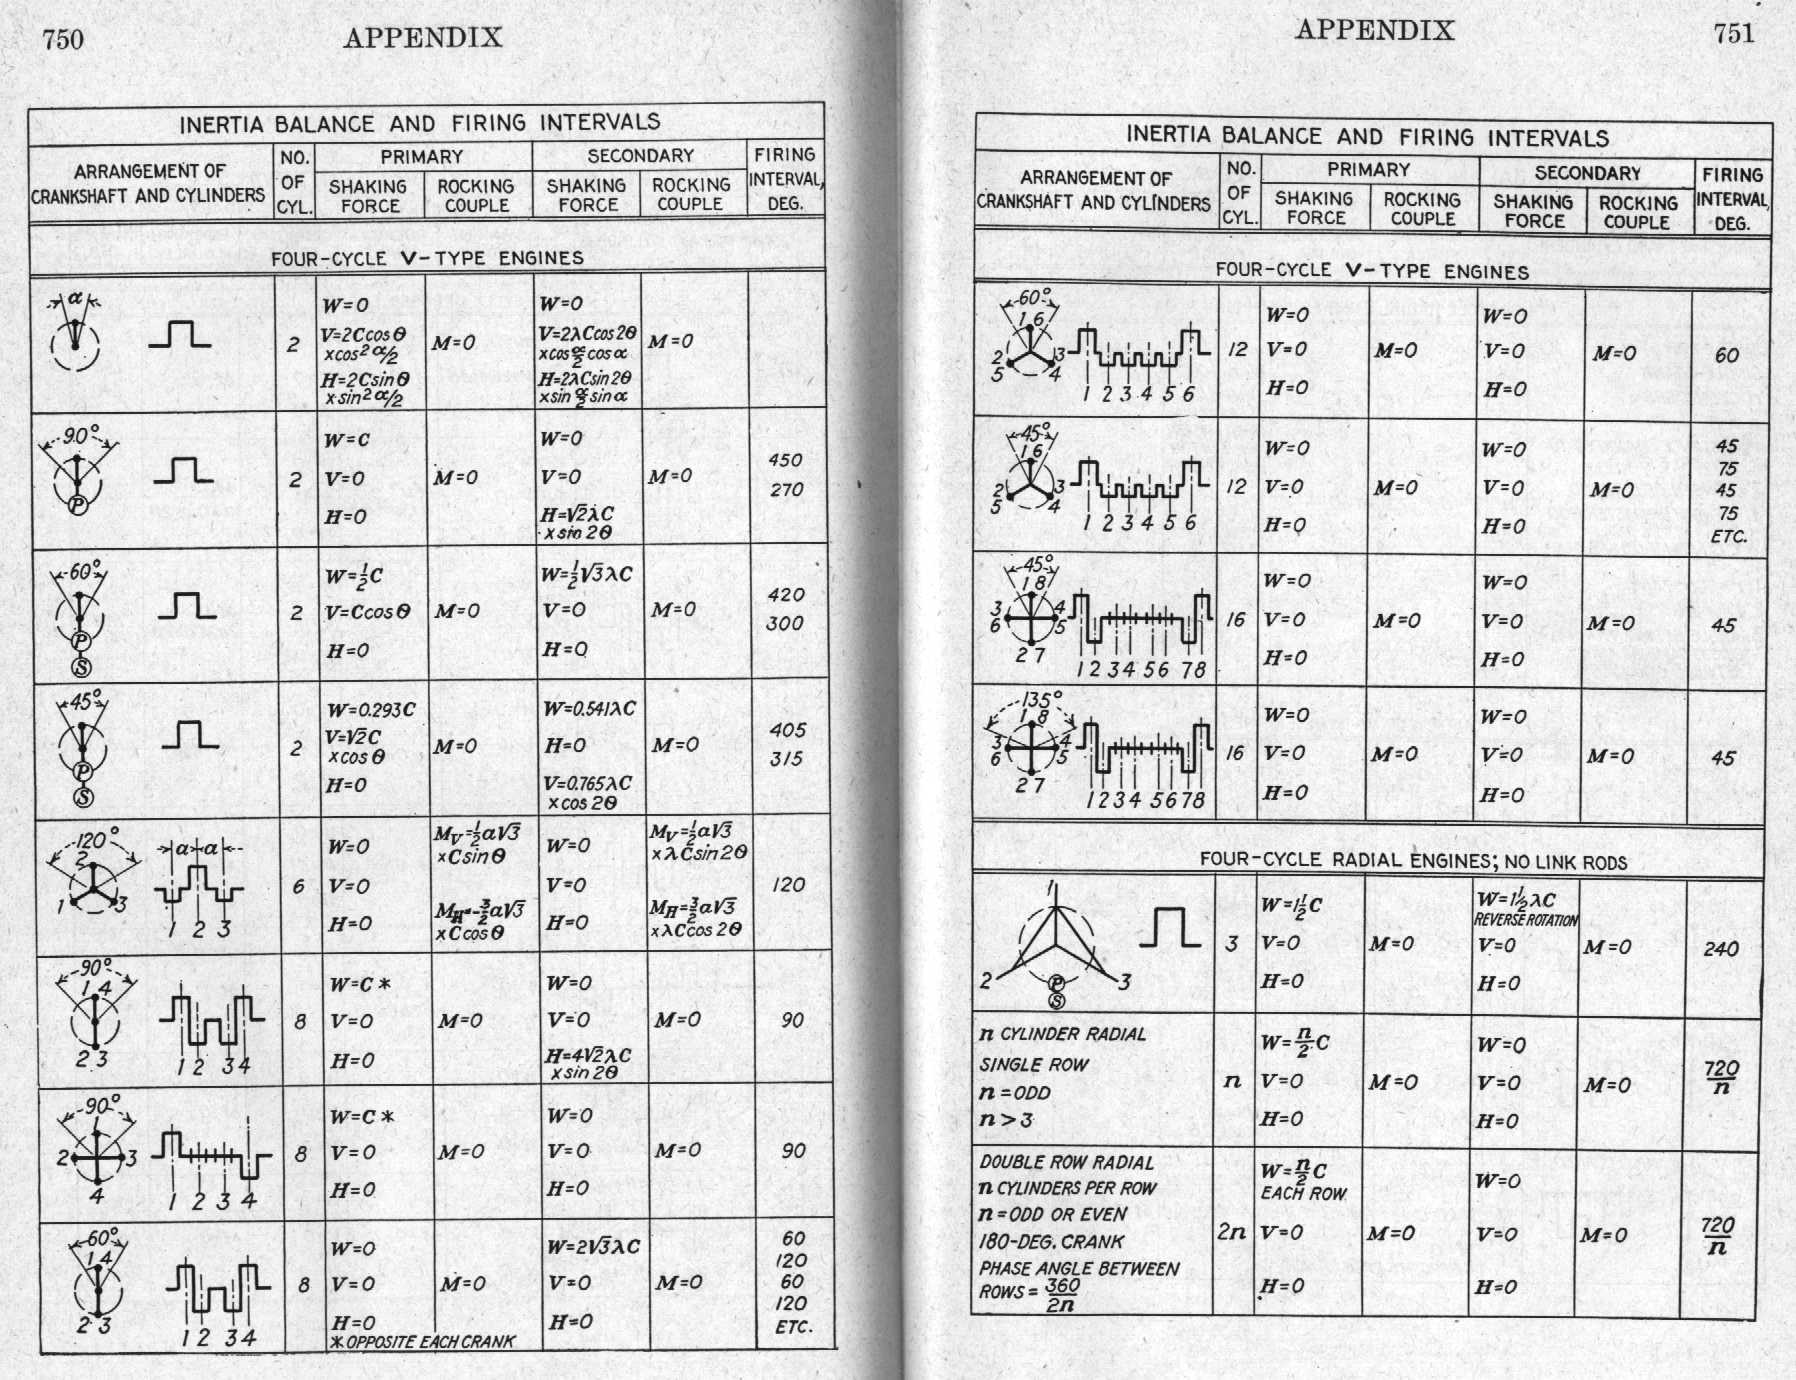 750
APPENDIX
INERTIA BALANCE AND FIRING INTERVALS
ARRANGEMENT OF CRANKSHAFT AND CYLINDERS
NO. OF CYL.
PRIMARY
SHAKING FORCE
ROCKING COUPLE
SECONDARY
SHAKING FORCE
ROCKING COUPLE
FIRING INTERVAL, DEG.
FOUR-CYCLE V-TYPE ENGINES
α
2
W=0
V=2C cos θ
×cos² α/2
H=2C sin θ
×sin² α/2
M=0
W=0
V=2λC cos 2θ
×cos α/2 cos α
H=2λC sin 2θ
×sin α/2 sin α
M=0
90°
P
2
W=C
V=0
H=0
M=0
W=0
V=0
H=√2λC
×sin 2θ
M=0
450
270
60°
P
S
2
W=½C
V=C cos θ
H=0
M=0
W=½√3λC
V=0
H=0
M=0
420
300
45°
P
S
2
W=0.293C
V=√2C
×cos θ
H=0
M=0
W=0.541λC
H=0
V=0.765λC
×cos 2θ
M=0
405
315
120°
2
1 3
a a
1 2 3
6
W=0
V=0
H=0
M_V=½a√3
×C sin θ
M_H=-3/2 a√3
×C cos θ
W=0
V=0
H=0
M_V=½a√3
×λC sin 2θ
M_H=3/2 a√3
×λC cos 2θ
120
90°
1 4
2 3
1 2 3 4
8
W=C *
V=0
H=0
M=0
W=0
V=0
H=4√2λC
×sin 2θ
M=0
90
90°
1
2 3
4
1 2 3 4
8
W=C *
V=0
H=0
M=0
W=0
V=0
H=0
M=0
90
60°
1 4
2 3
1 2 3 4
8
W=0
V=0
H=0
M=0
W=2√3λC
V=0
H=0
M=0
60
120
60
120
ETC.
* OPPOSITE EACH CRANK
APPENDIX
751
INERTIA BALANCE AND FIRING INTERVALS
ARRANGEMENT OF CRANKSHAFT AND CYLINDERS
NO. OF CYL.
PRIMARY
SHAKING FORCE
ROCKING COUPLE
SECONDARY
SHAKING FORCE
ROCKING COUPLE
FIRING INTERVAL, DEG.
FOUR-CYCLE V-TYPE ENGINES
60°
1 6
2 3
5 4
1 2 3 4 5 6
12
W=0
V=0
H=0
M=0
W=0
V=0
H=0
M=0
60
45°
1 6
2 3
5 4
1 2 3 4 5 6
12
W=0
V=0
H=0
M=0
W=0
V=0
H=0
M=0
45
75
45
75
ETC.
45°
1 8
3 4
6 5
2 7
1 2 3 4 5 6 7 8
16
W=0
V=0
H=0
M=0
W=0
V=0
H=0
M=0
45
135°
1 8
3 4
6 5
2 7
1 2 3 4 5 6 7 8
16
W=0
V=0
H=0
M=0
W=0
V=0
H=0
M=0
45
FOUR-CYCLE RADIAL ENGINES; NO LINK RODS
1
2 3
P
S
3
W=1½C
V=0
H=0
M=0
W=1½λC
REVERSE ROTATION
V=0
H=0
M=0
240
n CYLINDER RADIAL
SINGLE ROW
n=ODD
n>3
n
W=n/2 C
V=0
H=0
M=0
W=0
V=0
H=0
M=0
720/n
DOUBLE ROW RADIAL
n CYLINDERS PER ROW
n=ODD OR EVEN
180-DEG. CRANK
PHASE ANGLE BETWEEN
ROWS=360/2n
2n
W=n/2 C
EACH ROW
V=0
H=0
M=0
W=0
V=0
H=0
M=0
720/n